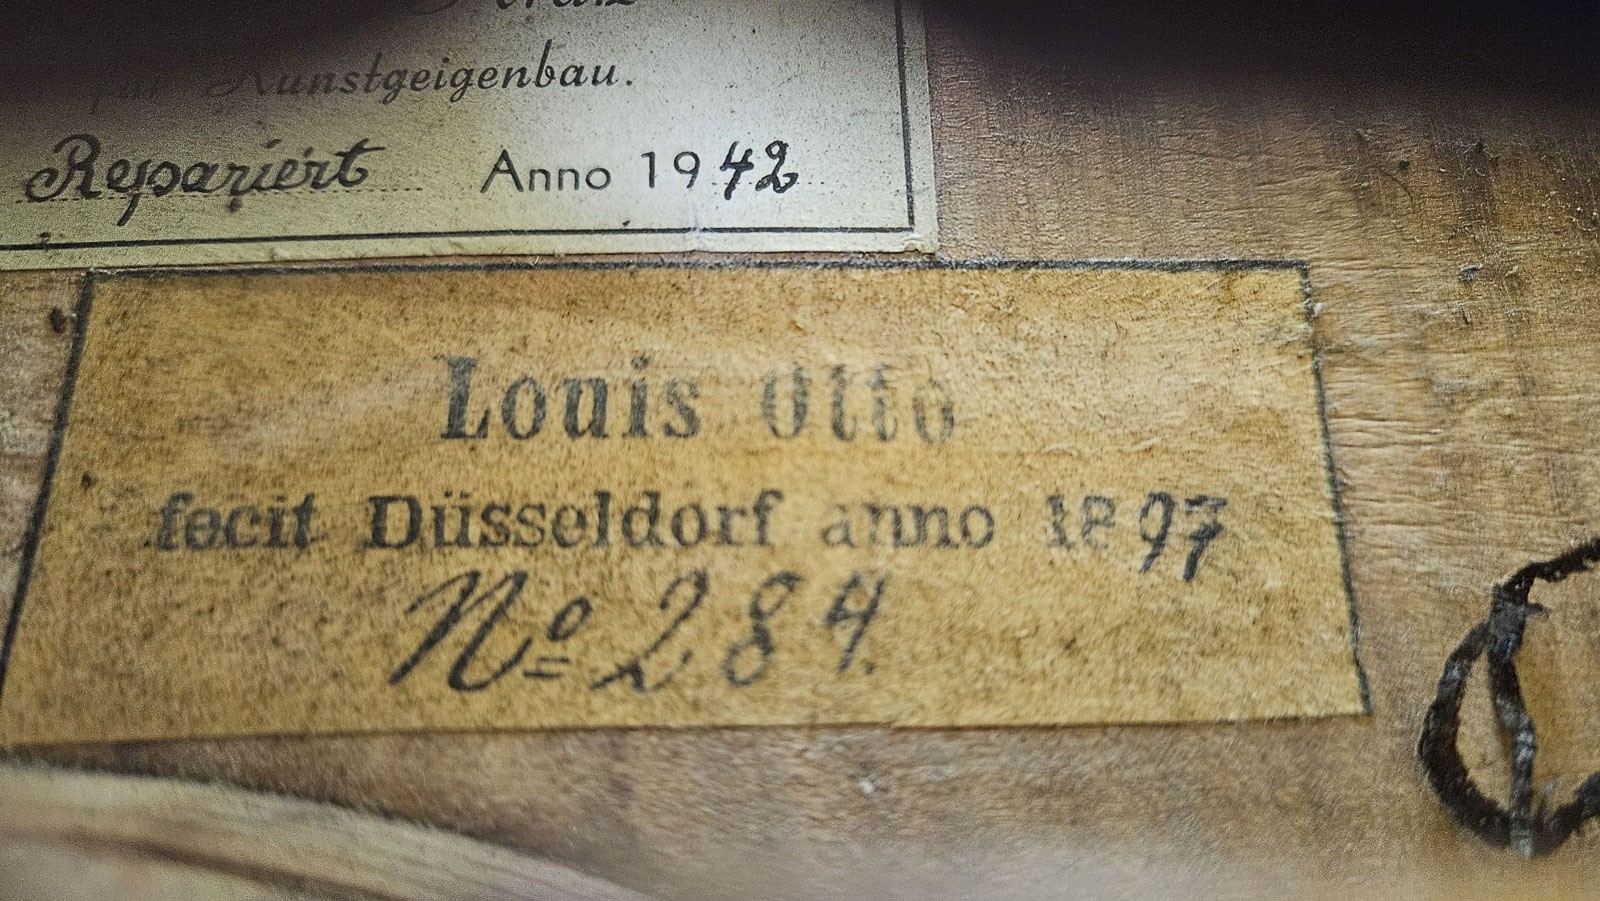 Kunstgeigenbau.
Repariert Anno 1942
Louis Otto
fecit Düsseldorf anno 1897
No= 284.